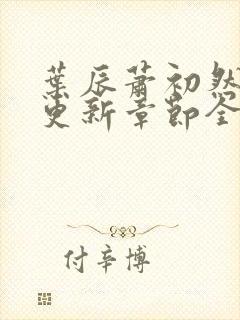 葉辰蕭初然
更新章節全
付辛博